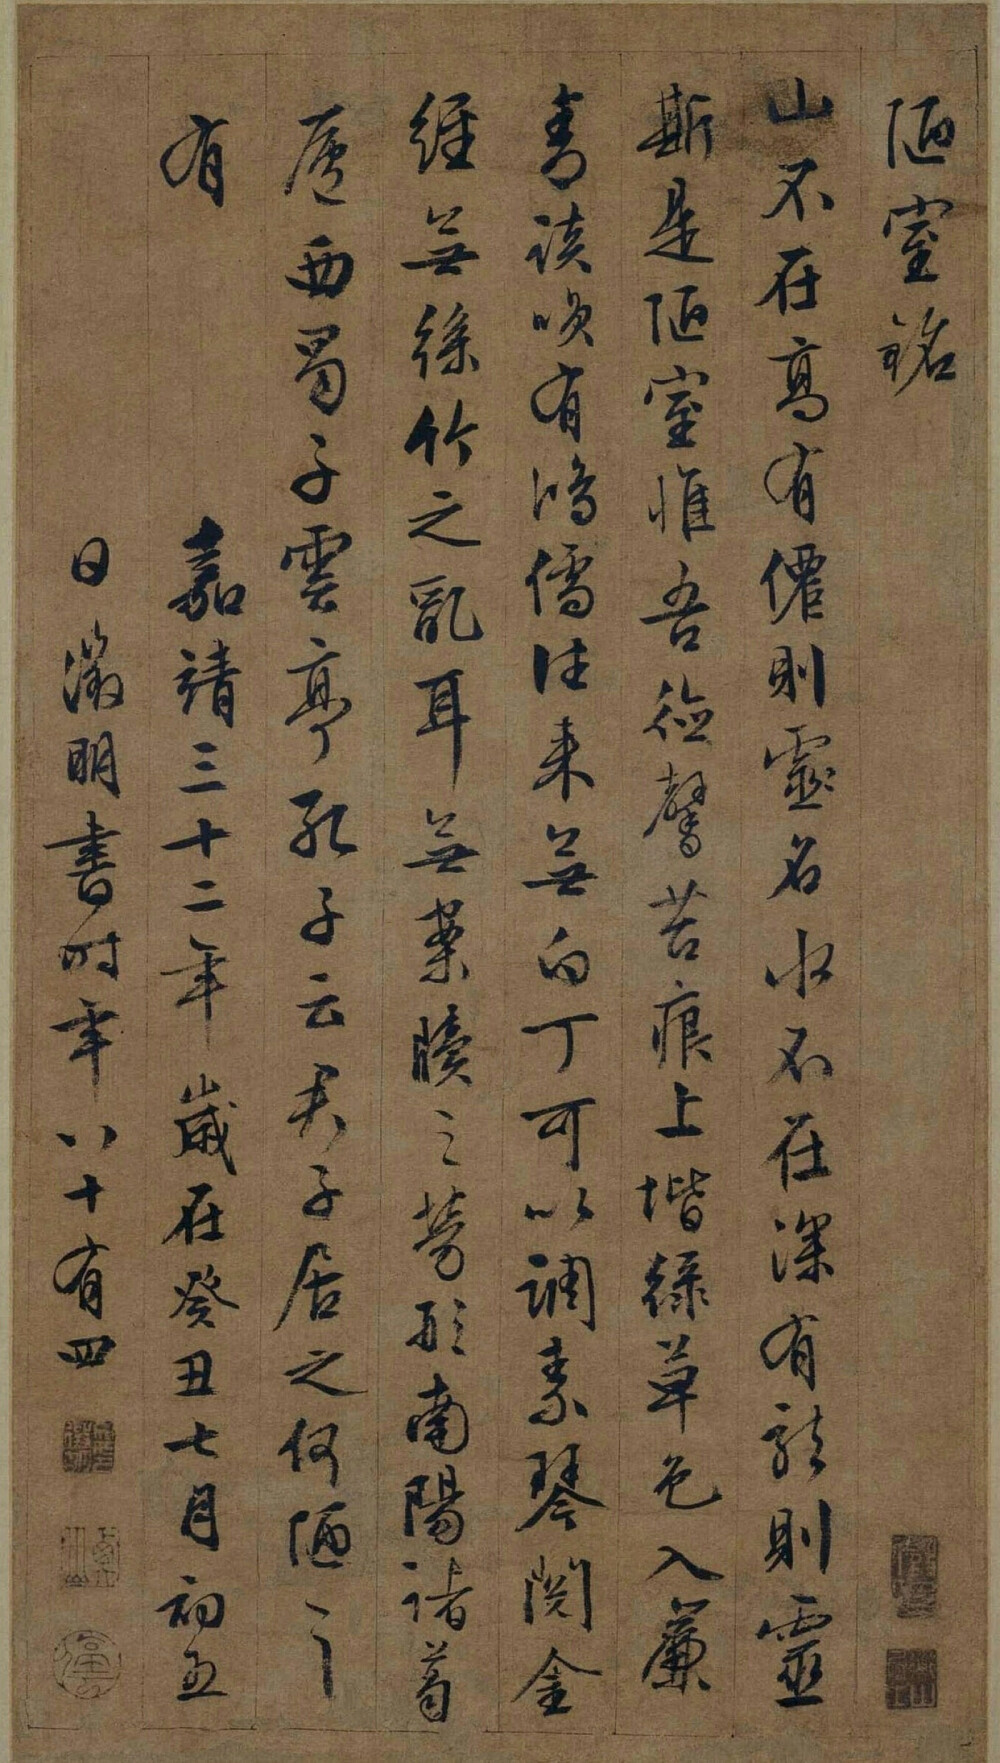 陋室銘
山不在高有僊則靈名水不在深有龍則靈
斯是陋室惟吾德馨苔痕上堦綠草色入簾
青談唤有鴻儒往来無白丁可以調素琴閱金
經無絲竹之亂耳無案牘之勞形南陽諸葛
廬西蜀子雲亭孔子云君子居之何陋之
有
嘉靖三十二年歲在癸丑七月初五
日徵明書時年八十有四